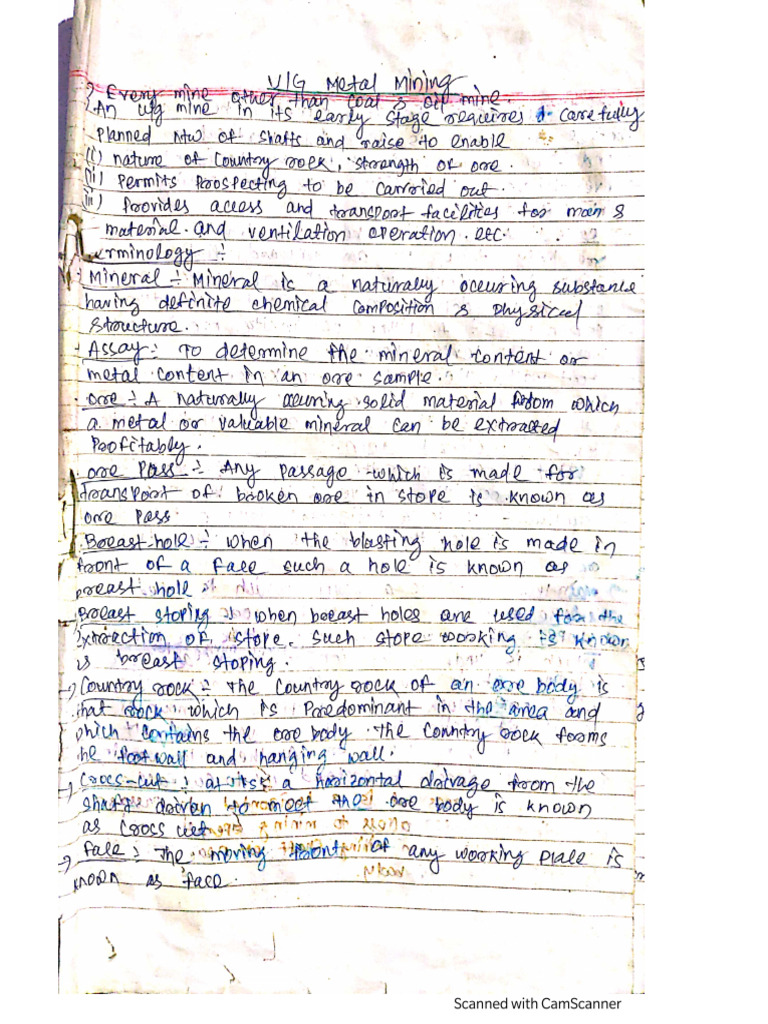 U/G Metal Mining
Every mine other than coal & oil mine.
An u/g mine in its early stage requires carefully
planned N/w of shafts and raise to enable
(i) nature of Country rock, strength of ore.
(ii) Permits Prospecting to be carried out.
iii) Provides access and transport facilities for man &
material and ventilation operation etc.
rminology ÷
Mineral ÷ Mineral is a naturally occuring substance
having definite chemical composition & physical
structure.
Assay : To determine the mineral content or
metal content in an ore sample.
ore ÷ A naturally occuring solid material from which
a metal or valuable mineral can be extracted
Profitably.
ore Pass ÷ Any passage which is made for
transport of broken ore in stope is known as
ore Pass
Breast hole ÷ when the blasting hole is made in
front of a face such a hole is known as
breast hole
Breast stoping when breast holes are used for the
Extraction of stope. Such stope working is known
is breast stoping.
→ Country rock ÷ The Country rock of an ore body is
that rock which is Predominant in the area and
which contains the ore body the Country rock forms
he footwall and hanging wall.
→ Cross-cut : a horizontal drivage from the
shaft driven to meet the ore body is known
as Cross cut
→ face : The moving front of any working place is
known as face.
Scanned with CamScanner